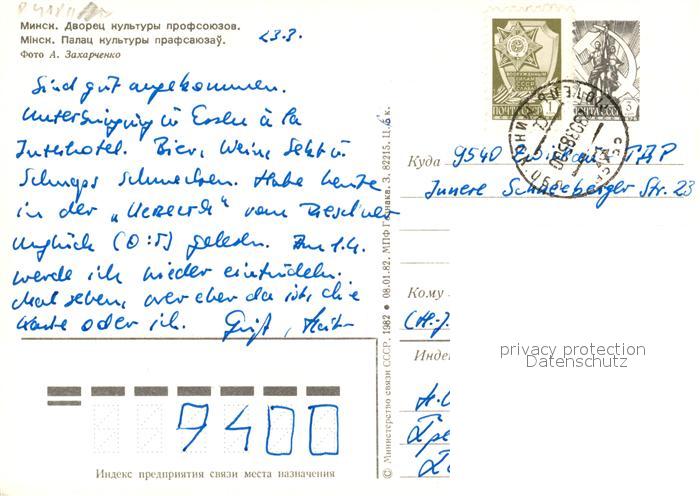 Минск. Дворец культуры профсоюзов.
Мінск. Палац культуры прафсаюзаў.
Фото А. Захарченко
23.3.
Sind gut angekommen.
Unterbringung u. Essen à la
Interhotel. Bier, Wein, Sekt u.
Schnaps schmecken. Habe heute
in der „Известия" vom
Unglück (0:5) gelesen. Am 1.4.
werde ich wieder eintrudeln.
Mal sehen, wer eher da ist, die
Karte oder ich. Gruß,
9400
Индекс предприятия связи места назначения
© Министерство связи СССР. 1982 • 08.01.82. МПФ Гознака. З. 82215. Ц. к.
ПОЧТА 1
ПОЧТА СССР 3
Куда 9540 ГДР
Innere Schneeberger Str. 23
Кому
(H.-J.
privacy protection
Datenschutz